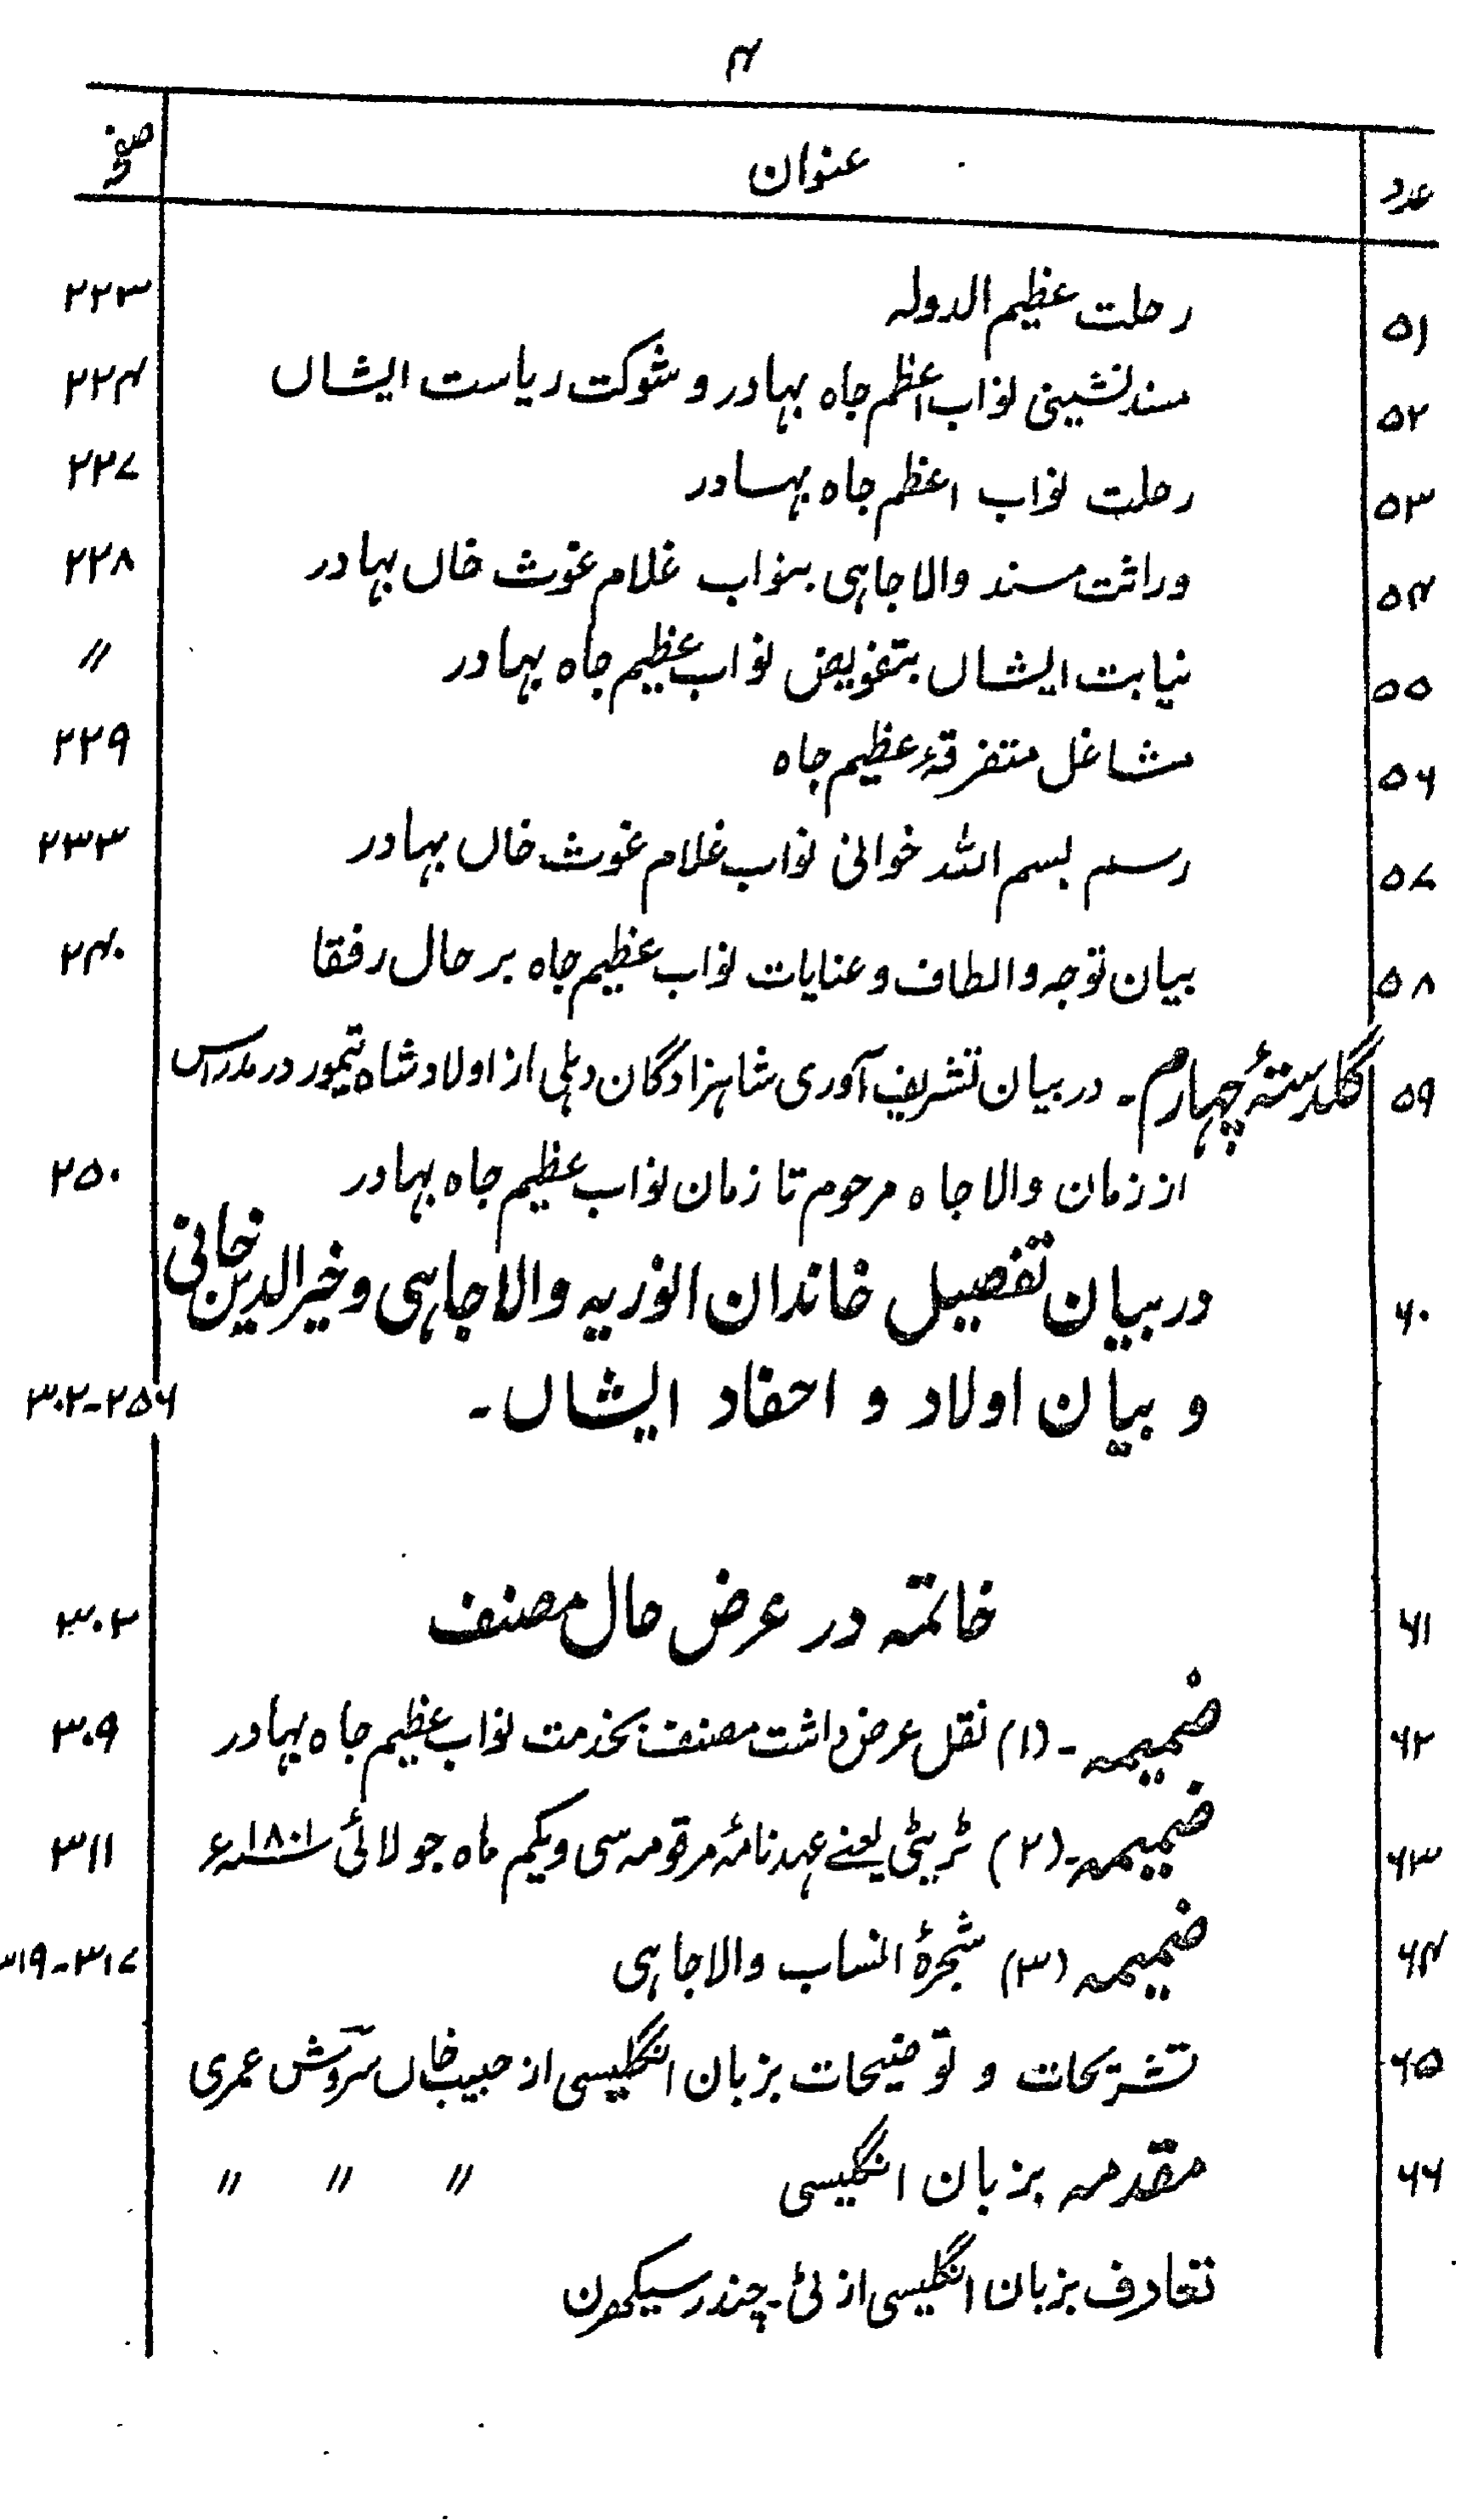 ۴
عدد عنوان صفحہ
۵۱ رحلت عظیم الدولہ ۲۲۳
۵۲ مسند نشینی نواب اعظم جاہ بہادر و شوکت ریاست ایشاں ۲۲۴
۵۳ رحلت نواب اعظم جاہ بہادر ۲۲۷
۵۴ وراثت مسند والا جاہی بنواب غلام غوث خاں بہادر ۲۲۸
۵۵ نیابت ایشاں بتفویض نواب عظیم جاہ بہادر 〃
۵۶ مشاغل متفرقۂ عظیم جاہ ۲۲۹
۵۷ رسم بسم اللہ خوانی نواب غلام غوث خاں بہادر ۲۳۳
۵۸ بیان توجہ و الطاف و عنایات نواب عظیم جاہ بر حال رفقا ۲۴۰
۵۹ گلدستۂ چہارم۔ در بیان تشریف آوری شاہزادگان دہلی از اولاد شاہ تیمور در مدراس
از زمان والا جاہ مرحوم تا زمان نواب عظیم جاہ بہادر ۲۵۰
۶۰ در بیان تفصیل خاندان انوریہ والا جاہی و خیرالدین خانی
و بیان اولاد و احفاد ایشاں۔ ۲۵۶-۳۰۲
۶۱ خاتمہ در عرض حال مصنف ۳۰۳
۶۲ ضمیمہ۔ (۱) نقل عرض داشت مصنف بخدمت نواب عظیم جاہ بہادر ۳۰۹
۶۳ ضمیمہ۔ (۲) ٹریٹی یعنے عہدنامۂ مرقومہ سی و یکم ماہ جولائی ۱۸۰۱ء ۳۱۱
۶۴ ضمیمہ (۳) شجرۂ انساب والا جاہی ۳۱۷-۳۱۹
۶۵ تشریحات و توضیحات بزبان انگلیسی از حبیب خاں سروش عمری
۶۶ مقدمہ بزبان انگلیسی 〃 〃 〃
تعارف بزبان انگلیسی از ٹی۔ چندرسیکھرن